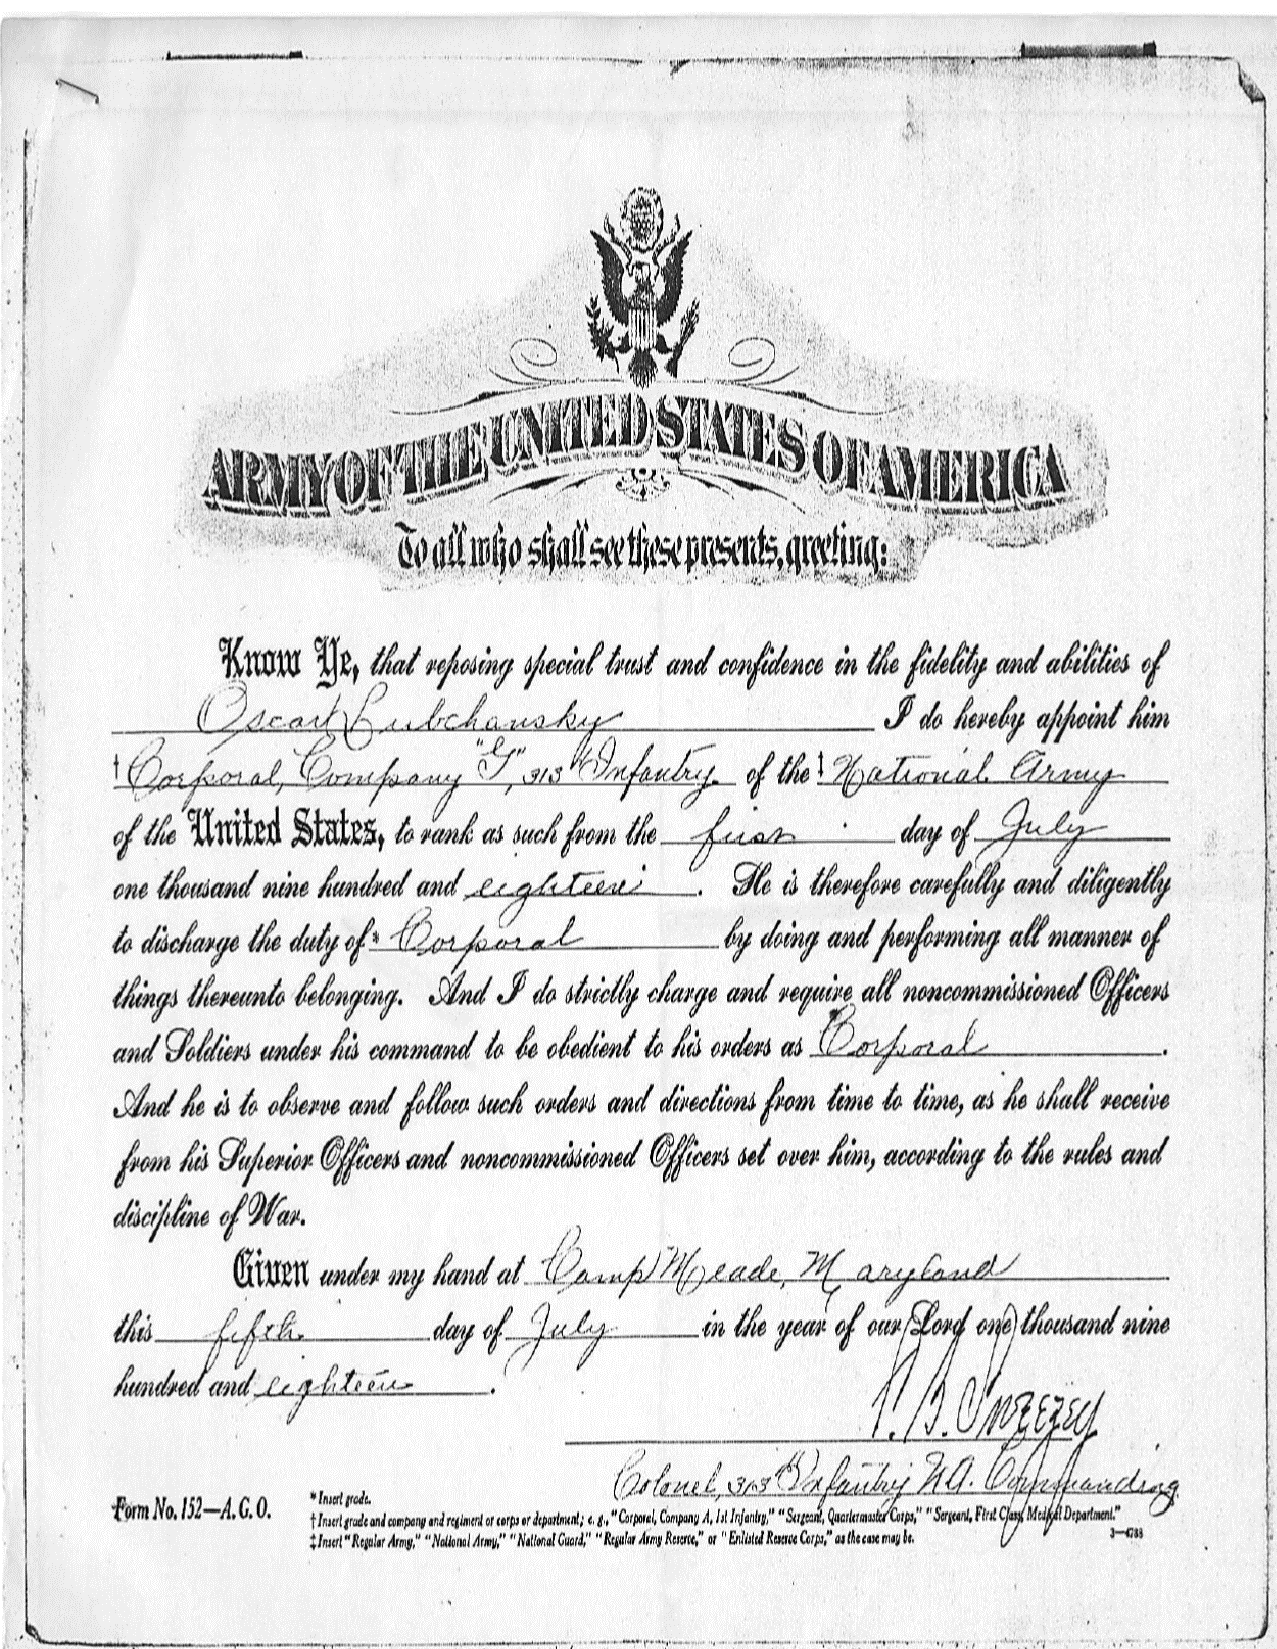 ARMY OF THE UNITED STATES OF AMERICA
To all who shall see these presents, greeting:
Know Ye, that reposing special trust and confidence in the fidelity and abilities of
Oscar Lubchansky I do hereby appoint him
† Corporal, Company "G", 313th Infantry. of the ‡ National Army
of the United States, to rank as such from the first day of July
one thousand nine hundred and eighteen. He is therefore carefully and diligently
to discharge the duty of * Corporal by doing and performing all manner of
things thereunto belonging. And I do strictly charge and require all noncommissioned Officers
and Soldiers under his command to be obedient to his orders as Corporal.
And he is to observe and follow such orders and directions from time to time, as he shall receive
from his Superior Officers and noncommissioned Officers set over him, according to the rules and
discipline of War.
Given under my hand at Camp Meade, Maryland
this fifth day of July in the year of our Lord one thousand nine
hundred and eighteen.
Colonel, 313th Infantry N.A. Commanding
Form No. 152—A.G.O.
* Insert grade.
† Insert grade and company and regiment or corps or department; e. g., "Corporal, Company A, 1st Infantry," "Sergeant, Quartermaster Corps," "Sergeant, First Class, Medical Department."
‡ Insert "Regular Army," "National Army," "National Guard," "Regular Army Reserve," or "Enlisted Reserve Corps," as the case may be.
3—4788